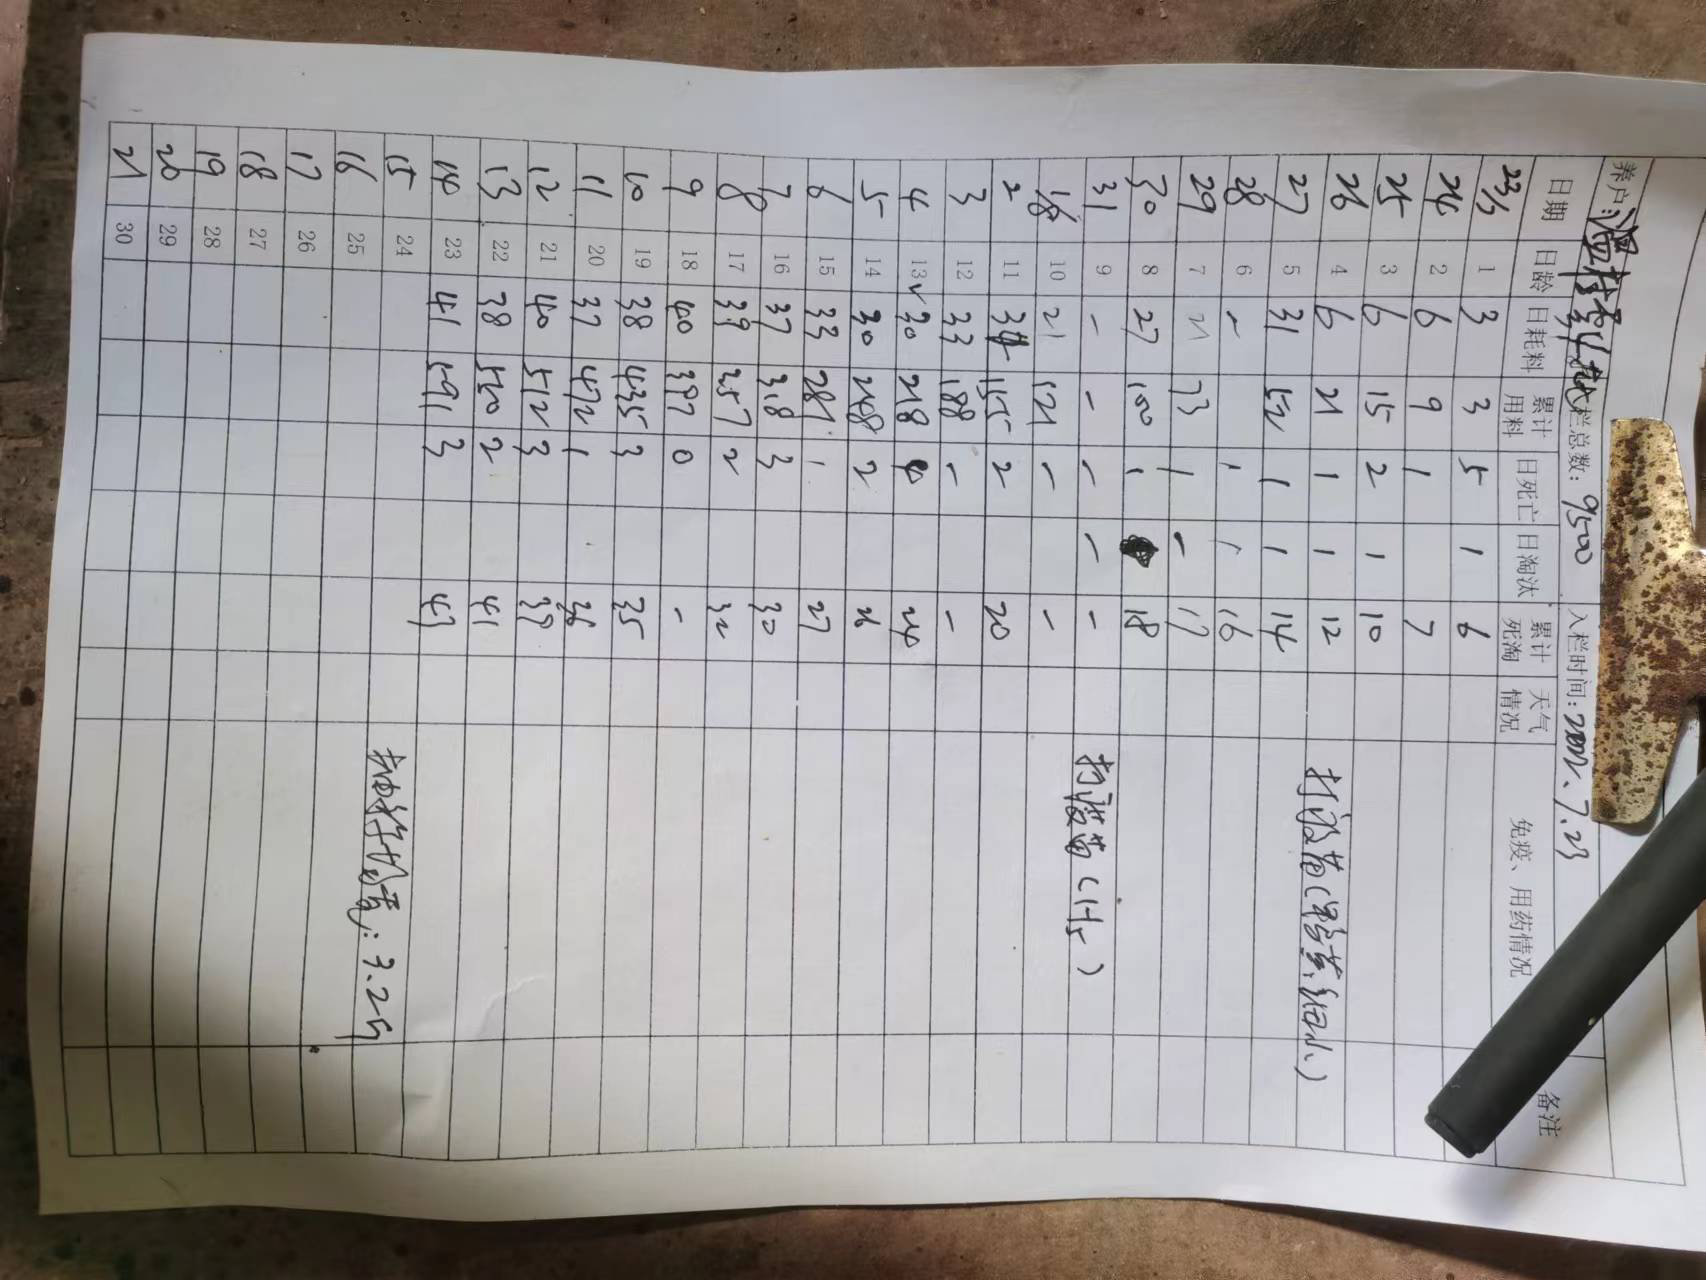 养户: 栏总数: 9500 入栏时间: 2022、7.23
日期 日龄 日耗料 累计用料 日死亡 日淘汰 累计死淘 天气情况 免疫、用药情况 备注
23/ 1 3 3 5 1 6
24 2 6 9 1 7
25 3 6 15 2 1 10
26 4 6 21 1 1 12
27 5 31 52 1 1 14 打疫苗( 、 )
28 6 - 1 1 16
29 7 21 73 1 - 17
30 8 27 100 1 18
31 9 - - - - - 打疫苗(H5)
1/8 10 21 121 - -
2 11 34 155 2 20
3 12 33 188 - -
4 13 30 218 4 24
5 14 30 248 2 26
6 15 33 281 1 27
7 16 37 318 3 30
8 17 39 357 2 32
9 18 40 397 0 -
10 19 38 435 3 35
11 20 37 472 1 36
12 21 40 512 3 39
13 22 38 550 2 41
14 23 41 591 3
15 24 : 3.25
16 25
17 26
18 27
19 28
20 29
21 30